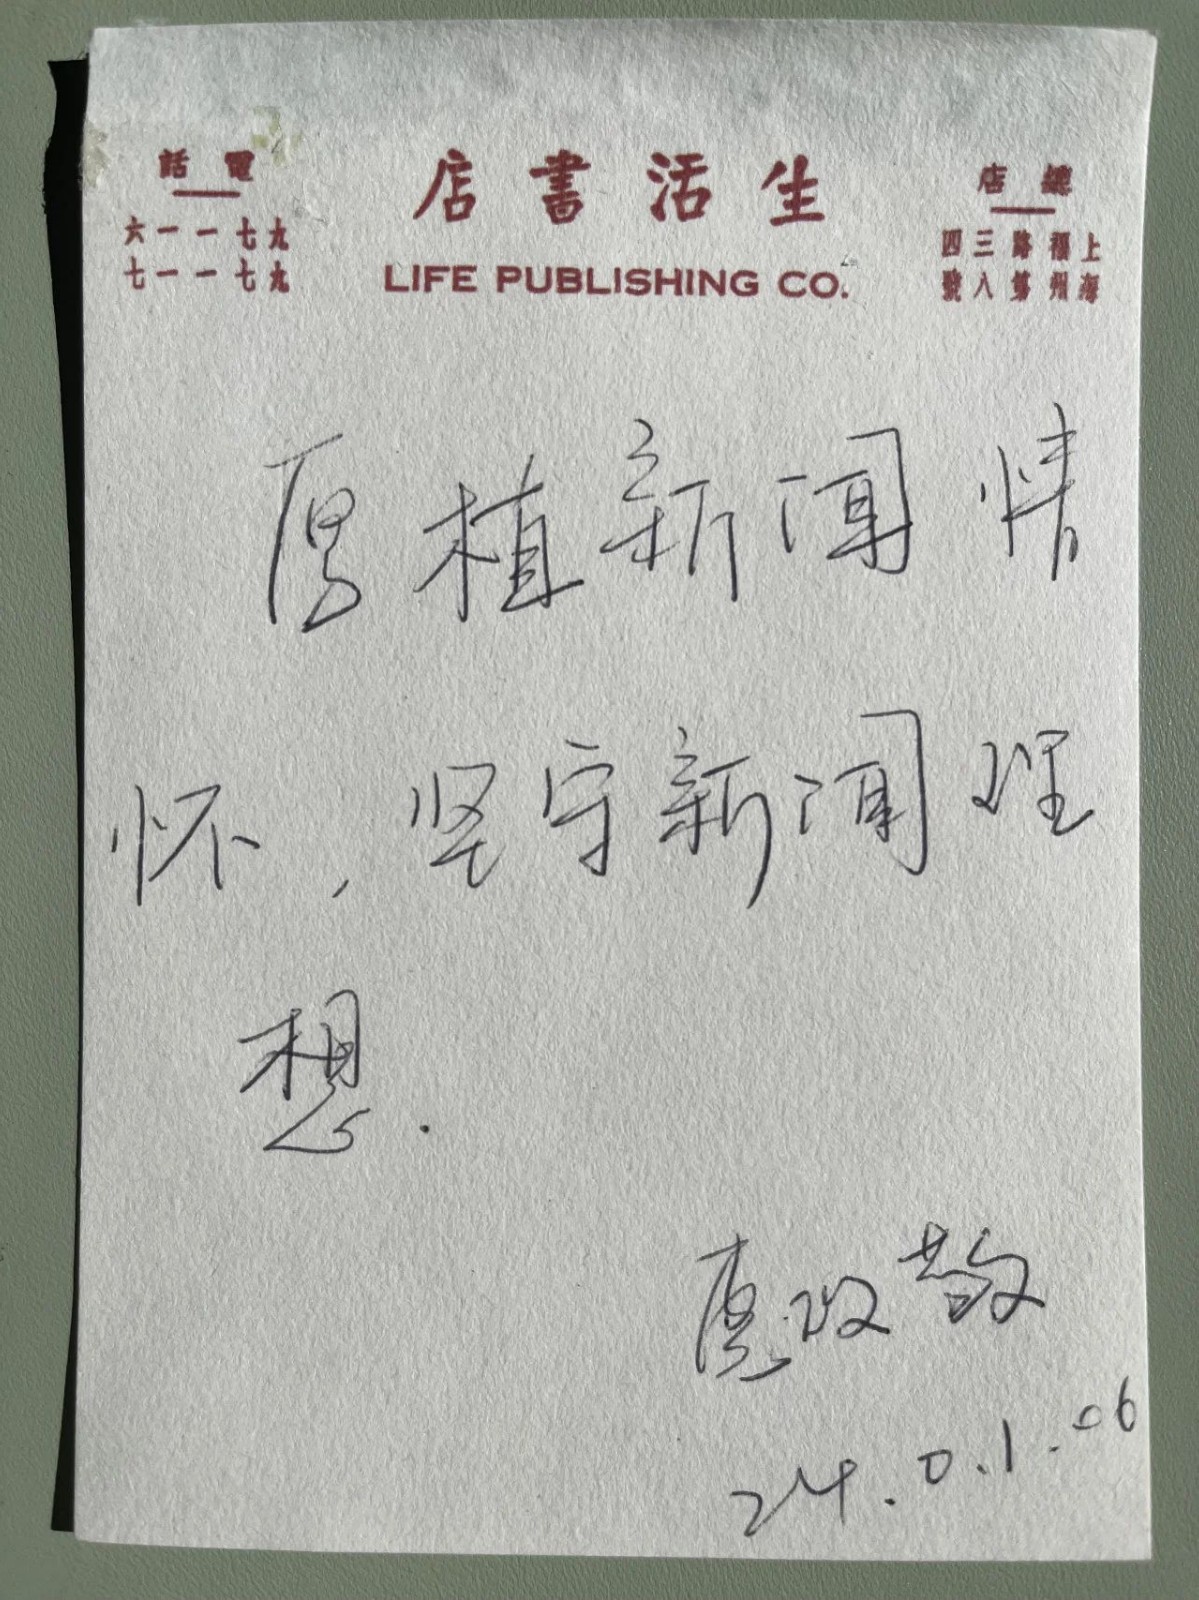 總店
上海福州路第三八四號
生活書店
LIFE PUBLISHING CO.
電話
九七一一六
九七一一七
厚植新闻情
怀，坚守新闻理
想.
24.0.1.06